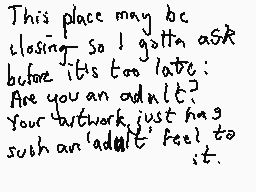 This place may be
closing so I gotta ask
before it's too late:
Are you an adult?
Your artwork just has
such an 'adult' feel to
it.